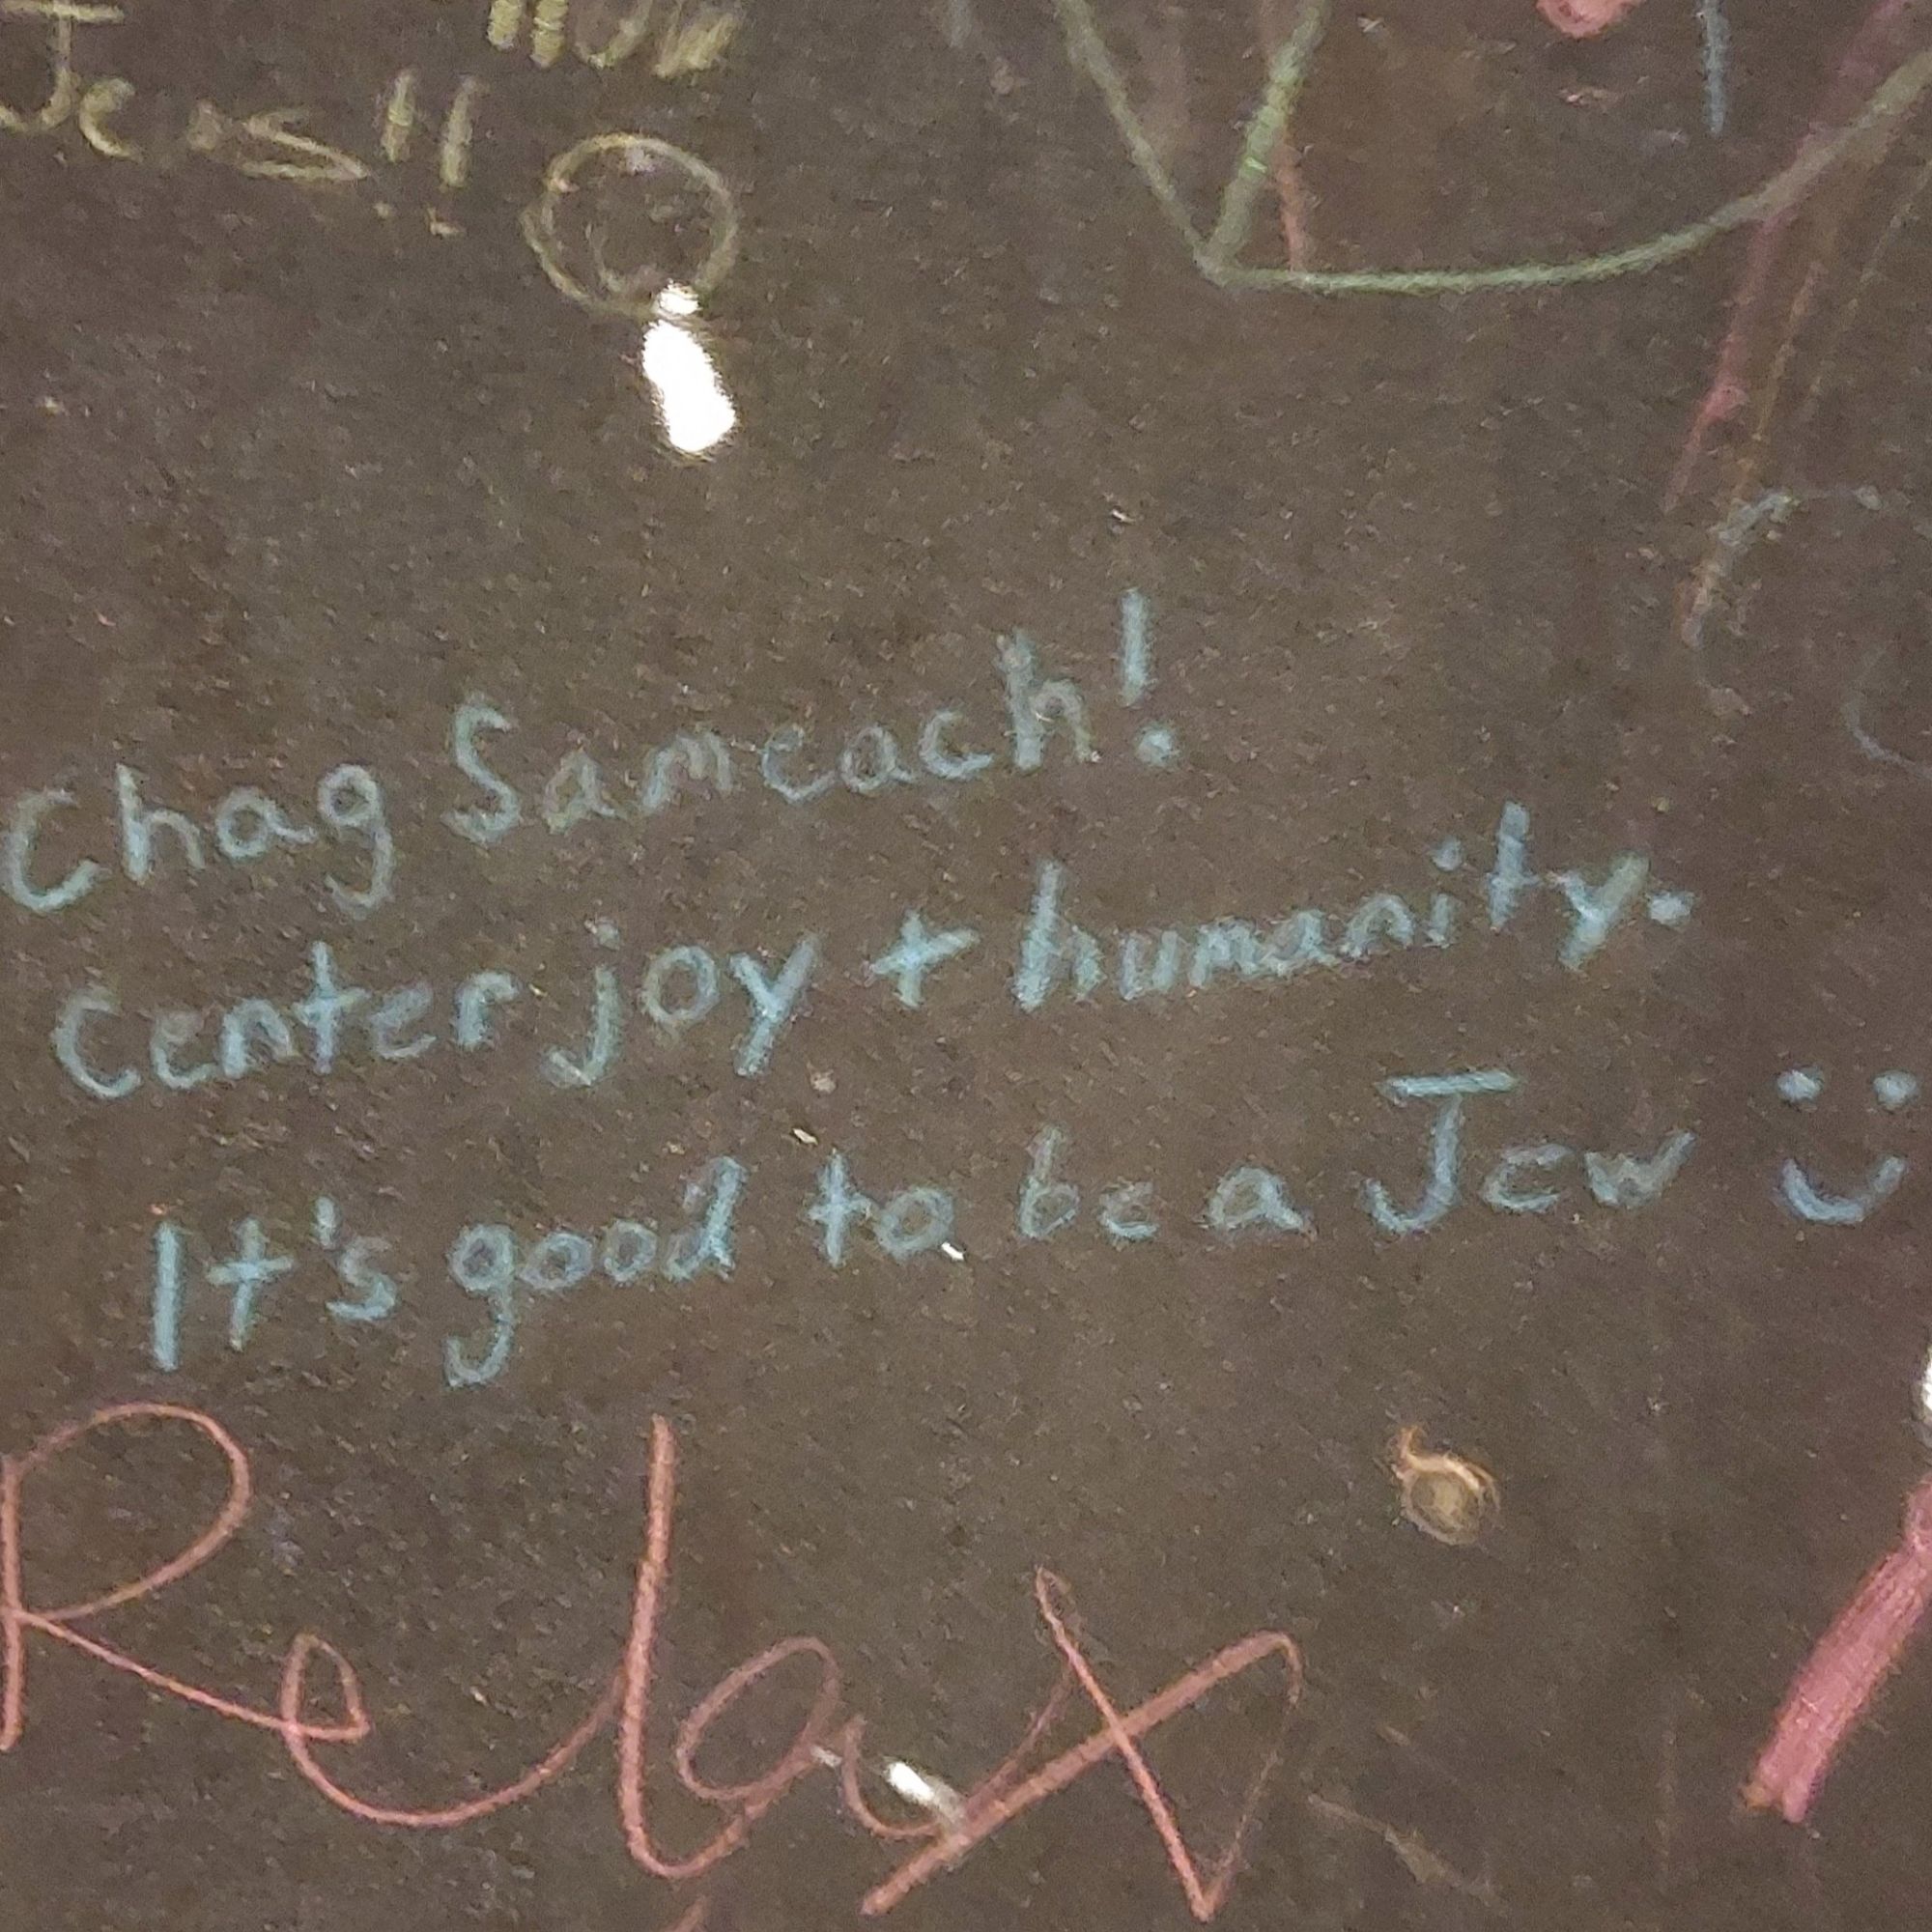 Chag Sameach!
Center joy + humanity.
It's good to be a Jew :)
Relax